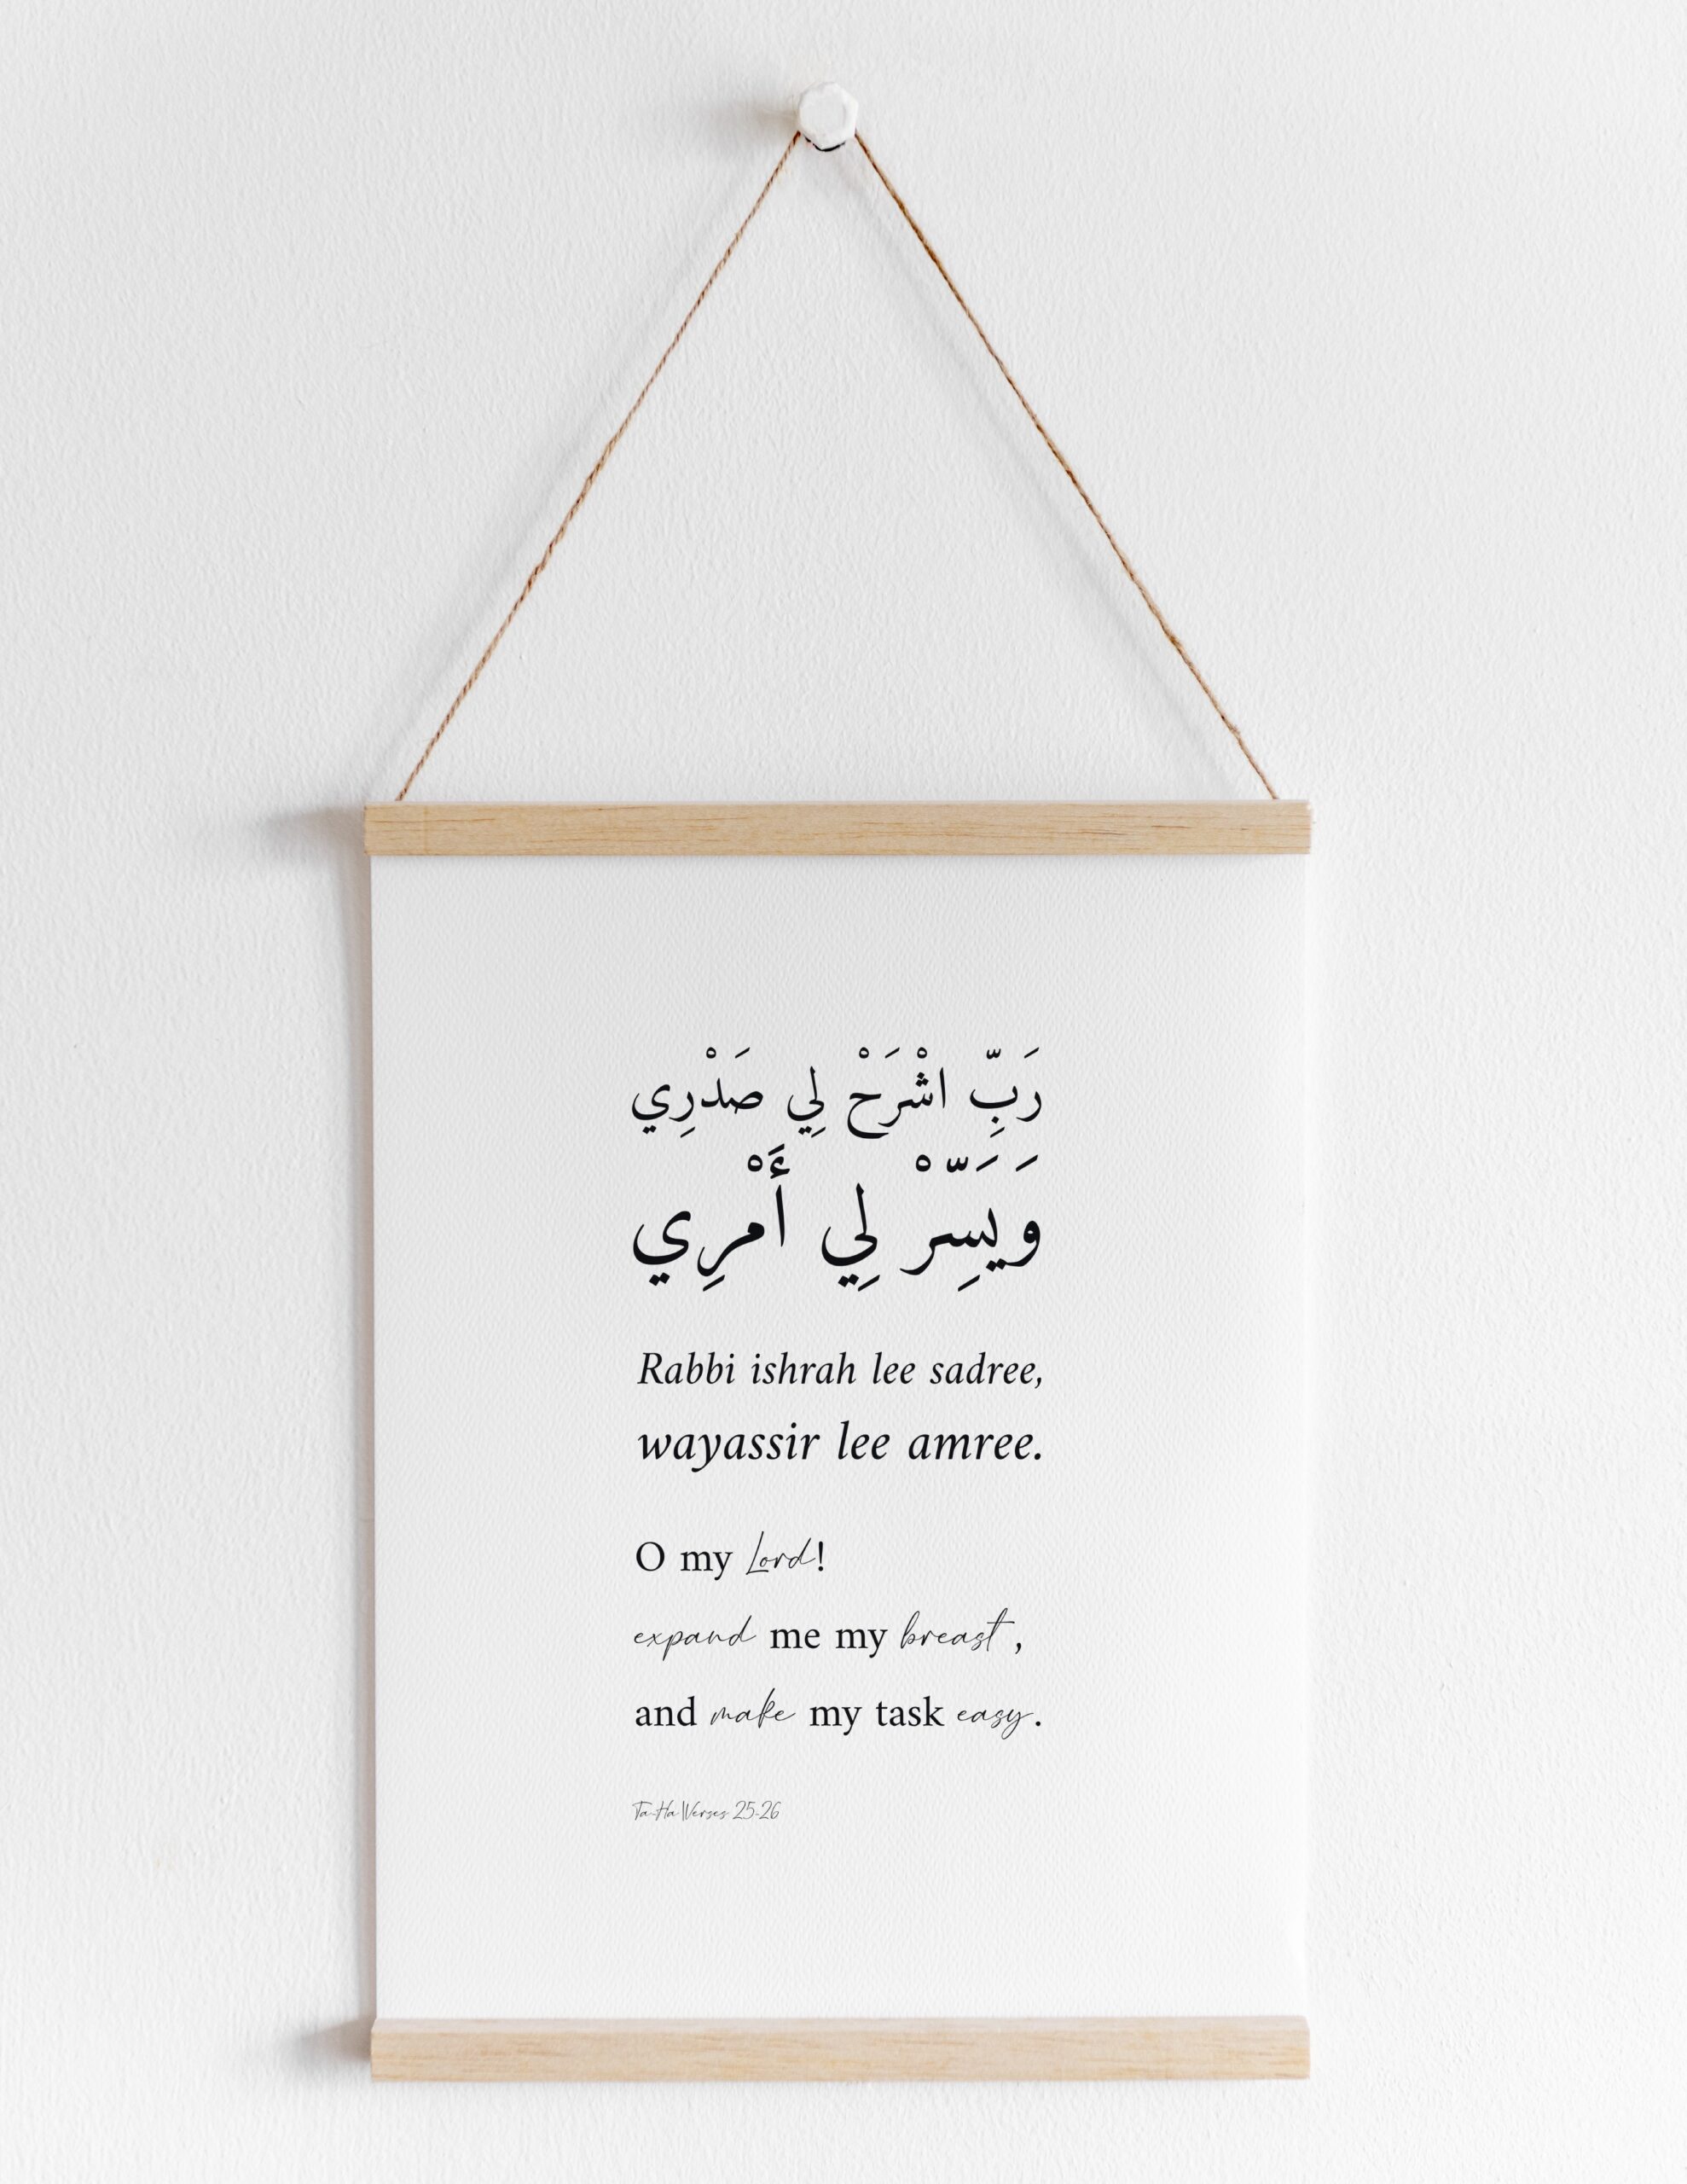 رَبِّ اشْرَحْ لِي صَدْرِي
وَيَسِّرْ لِي أَمْرِي
Rabbi ishrah lee sadree,
wayassir lee amree.
O my Lord!
expand me my breast,
and make my task easy.
Ta-Ha Verses 25-26